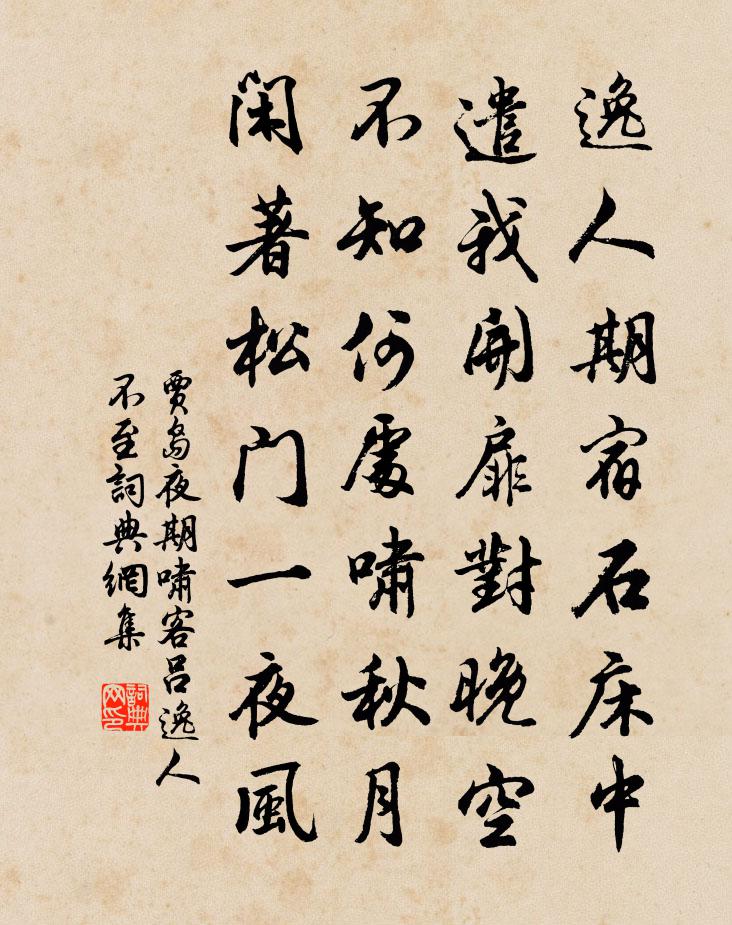 逸人期宿石床中
遣我開扉對晚空
不知何處嘯秋月
閑著松門一夜風
賈島夜期嘯客呂逸人
不至詞典網集
詞典
网印